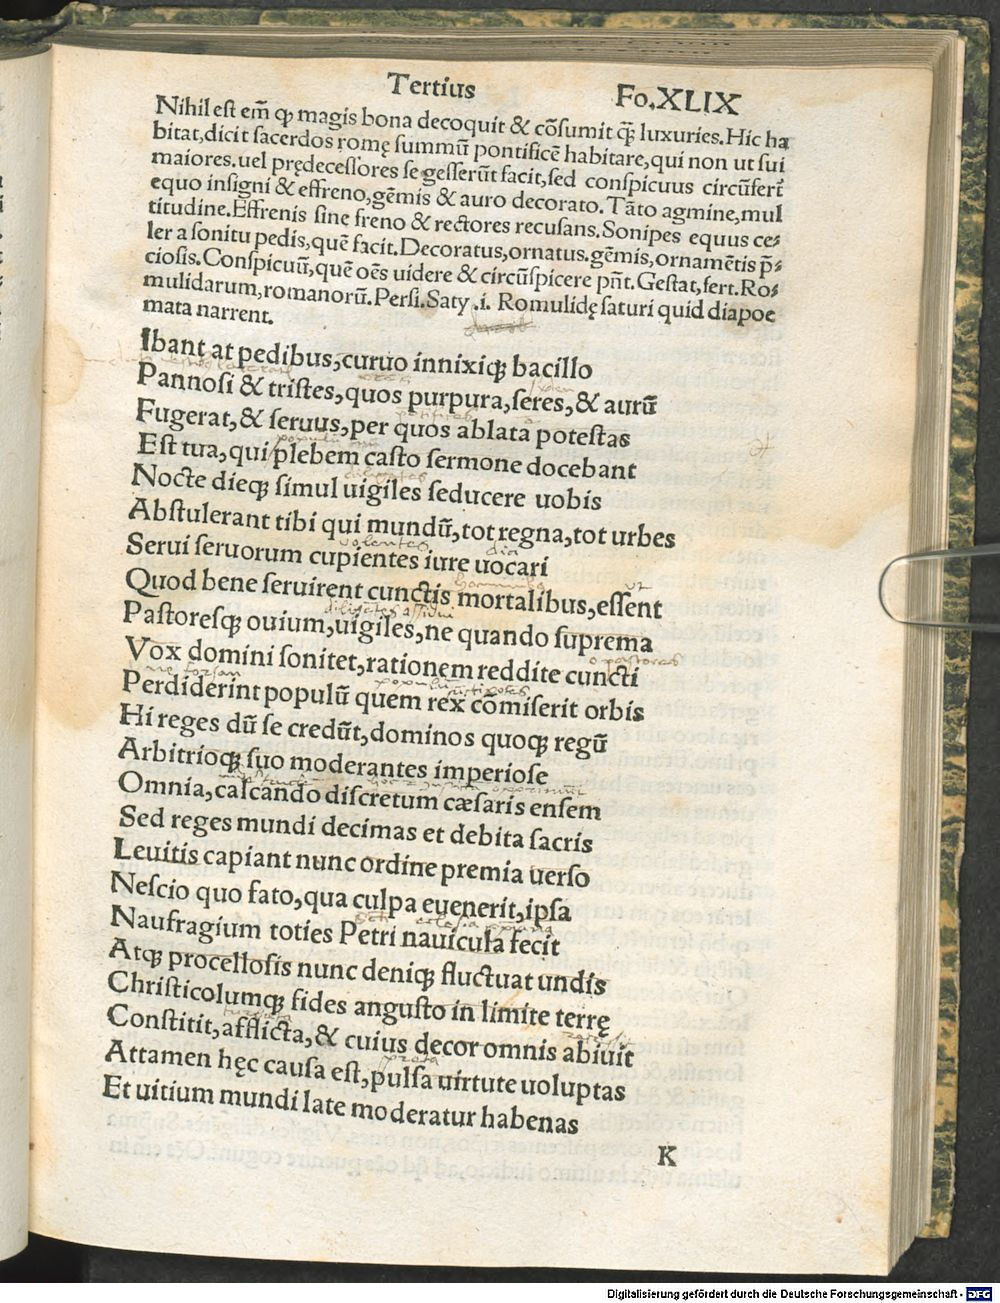 Tertius Fo.XLIX
Nihil est em̃ qȝ magis bona decoquit & cõsumit q̃ȝ luxuries. Hic ha
bitat, dicit sacerdos romę summũ pontificẽ habitare, qui non ut sui
maiores. uel prędecessores se gesserũt facit, sed conspicuus circũsert̃
equo insigni & effreno, gẽmis & auro decorato. Tãto agmine, mul
titudine. Effrenis sine freno & rectores recusans. Sonipes equus ce⸗
ler a sonitu pedis, quẽ facit. Decoratus, ornatus. gẽmis, ornamẽtis p̃⸗
ciosis. Conspicuũ, quẽ oẽs uidere & circũspicere pñt. Gestat, fert. Ro⸗
mulidarum, romanorũ. Persi. Saty .i. Romulidę saturi quid diapoe
mata narrent.
Ibant at pedibus, curuo innixiqȝ bacillo
Pannosi & tristes, quos purpura, seres, & aurũ
Fugerat, & seruus, per quos ablata potestas
Est tua, qui plebem casto sermone docebant
Nocte dieqȝ simul uigiles seducere uobis
Abstulerant tibi qui mundũ, tot regna, tot urbes
Serui seruorum cupientes iure uocari
Quod bene seruirent cunctis mortalibus, essent
Pastoresqȝ ouium, uigiles, ne quando suprema
Vox domini sonitet, rationem reddite cuncti
Perdiderint populũ quem rex cõmiserit orbis
Hi reges dũ se credũt, dominos quoqȝ regũ
Arbitrioqȝ suo moderantes imperiose
Omnia, calcando discretum cæsaris ensem
Sed reges mundi decimas et debita sacris
Leuitis capiant nunc ordine premia uerso
Nescio quo fato, qua culpa euenerit, ipsa
Naufragium toties Petri nauicula fecit
Atqȝ procellosis nunc deniqȝ fluctuat undis
Christicolumqȝ fides angusto in limite terrę
Constitit, afflicta, & cuius decor omnis abiuit
Attamen hęc causa est, pulsa uirtute uoluptas
Et uitium mundi late moderatur habenas
K
Digitalisierung gefördert durch die Deutsche Forschungsgemeinschaft - DFG